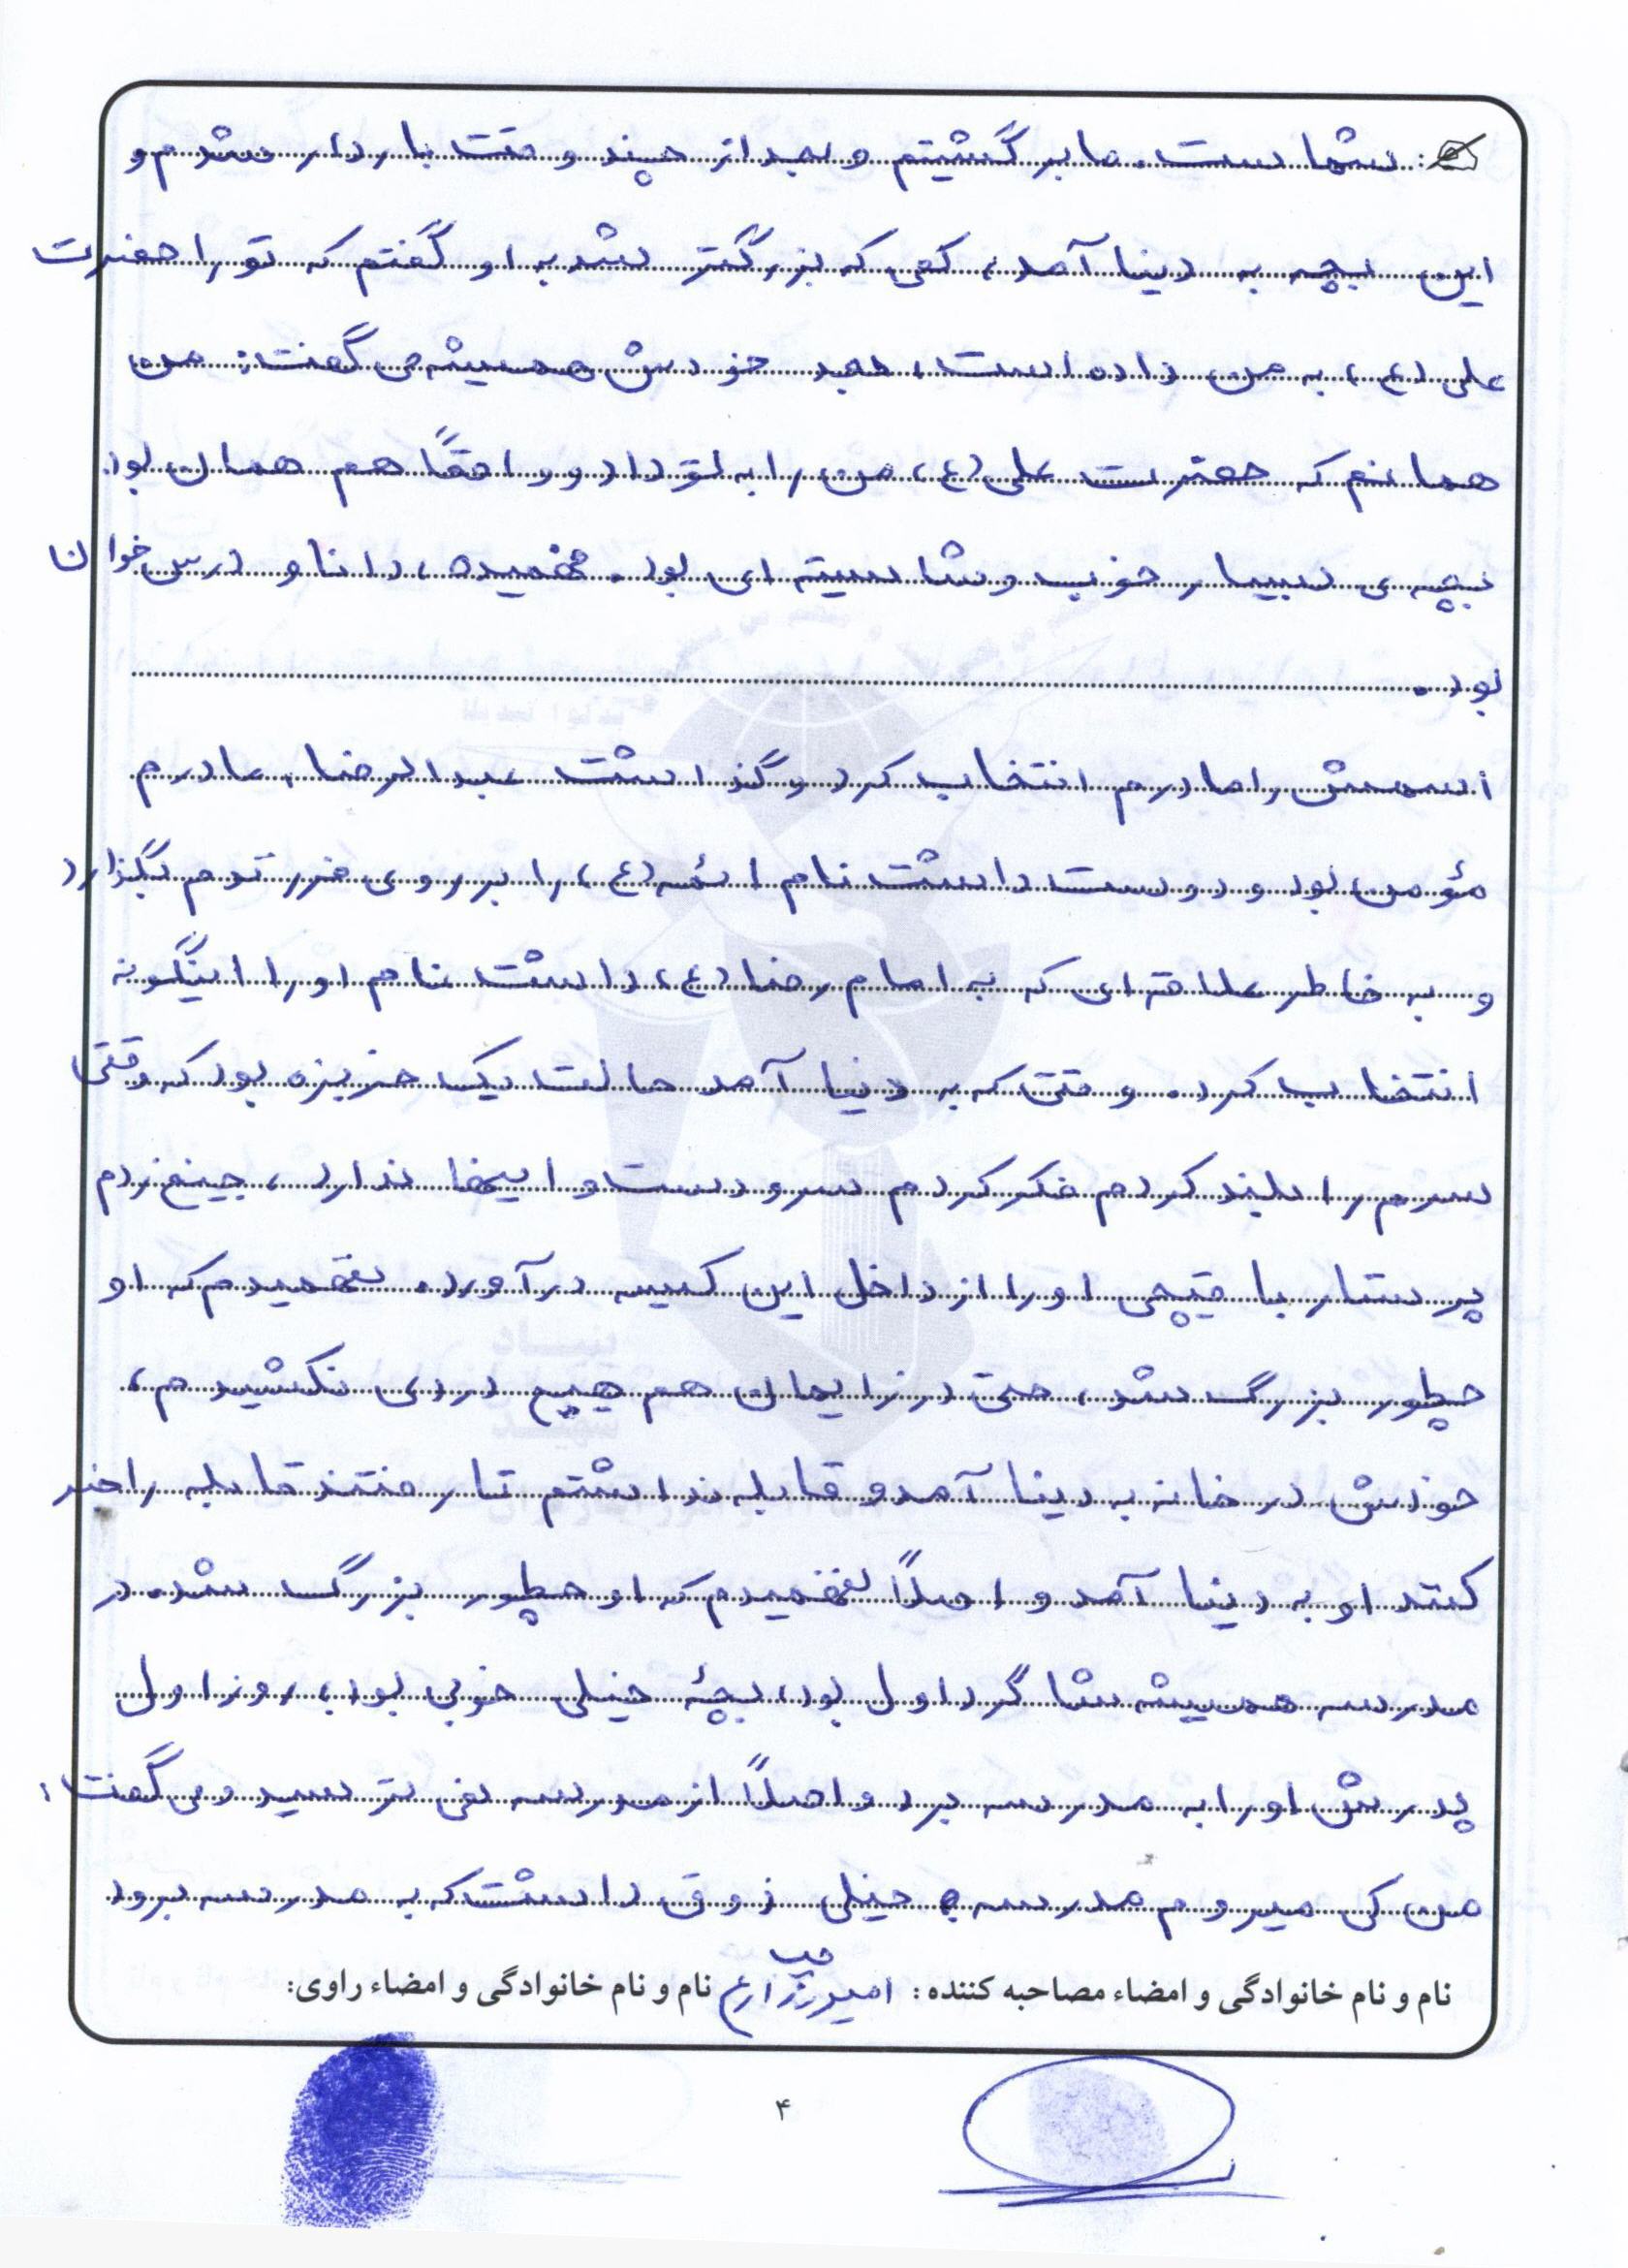 شماست. ما برگشتیم و بعد از چند وقت باردار شدم و
این بچه به دنیا آمد، کمی که بزرگتر شد به او گفتم که تو را حضرت
علی (ع)، به من داده است، بعد خودش همیشه می گفت: من
همانم که حضرت علی (ع)، من را به تو داد و واقعاً هم همان بود.
بچه ی بسیار خوب و شایسته ای بود. فهمیده، دانا و درس خوان
بود.
اسمش را مادرم انتخاب کرد و گذاشت عبدالرضا، مادرم
مؤمن بود و دوست داشت نام ائمه (ع)، را بر روی فرزندم بگذارد
و به خاطر علاقه ای که به امام رضا (ع)، داشت نام او را اینگونه
انتخاب کرد. وقتی که به دنیا آمد حالت یک خربزه بود که وقتی
سرم را بلند کردم فکر کردم سر و دست و اینها ندارد، جیغ زدم
پرستار با قیچی او را از داخل این کیسه درآورد. نفهمیدم که او
چطور بزرگ شد، حتی در زایمان هم هیچ دردی نکشیدم،
خودش در خانه به دنیا آمد و قابله نداشتم تا رفتند قابله را خبر
کنند او به دنیا آمد و اصلاً نفهمیدم که او چطور بزرگ شد. در
مدرسه همیشه شاگرد اول بود، بچهٔ خیلی خوبی بود، روز اول
پدرش او را به مدرسه برد و اصلاً از مدرسه نمی ترسید و می گفت:
من کی میروم مدرسه خیلی ذوق داشت که به مدرسه برود
نام و نام خانوادگی و امضاء مصاحبه کننده: امیر زارع نام و نام خانوادگی و امضاء راوی:
۴